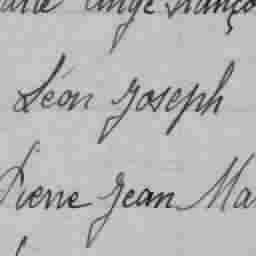 Ange Franço
Léon Joseph
Pierre Jean Ma